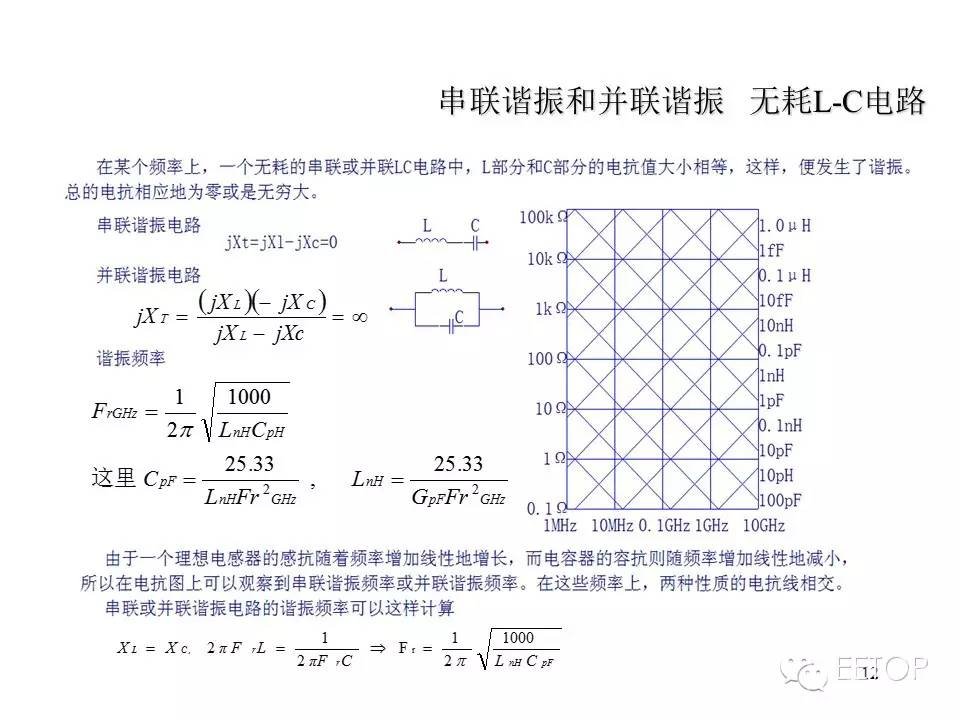 串联谐振和并联谐振 无耗L-C电路
在某个频率上，一个无耗的串联或并联LC电路中，L部分和C部分的电抗值大小相等，这样，便发生了谐振。
总的电抗相应地为零或是无穷大。
串联谐振电路
jXt=jXl-jXc=0
L C
并联谐振电路
jX_T = (jX_L)(- jX_C) / (jX_L - jXc) = ∞
L
C
谐振频率
F_rGHz = 1/2π √(1000 / L_nH C_pH)
这里 C_pF = 25.33 / (L_nH Fr²_GHz) , L_nH = 25.33 / (G_pF Fr²_GHz)
100kΩ
10kΩ
1kΩ
100Ω
10Ω
1Ω
0.1Ω
1.0μH
1fF
0.1μH
10fF
10nH
0.1pF
1nH
1pF
0.1nH
10pF
10pH
100pF
1MHz 10MHz 0.1GHz 1GHz 10GHz
由于一个理想电感器的感抗随着频率增加线性地增长，而电容器的容抗则随频率增加线性地减小，
所以在电抗图上可以观察到串联谐振频率或并联谐振频率。在这些频率上，两种性质的电抗线相交。
串联或并联谐振电路的谐振频率可以这样计算
X_L = X_C, 2πF_rL = 1 / 2πF_rC ⇒ F_r = 1/2π √(1000 / L_nH C_pF)
EETOP
12